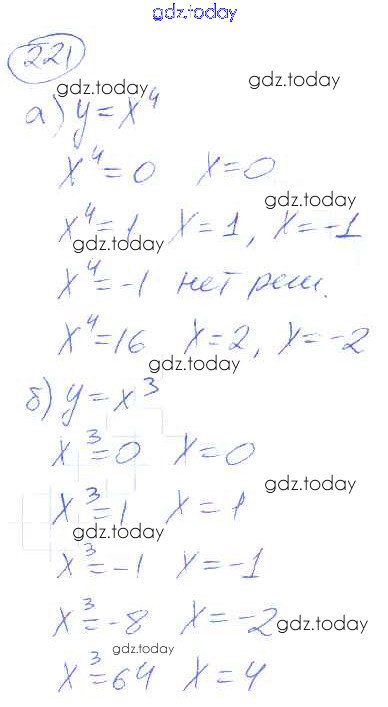 gdz.today
221
gdz.today gdz.today
а) y = x⁴
x⁴ = 0 x = 0
gdz.today
x⁴ = 1 x = 1, x = -1
gdz.today
x⁴ = -1 нет реш.
x⁴ = 16 x = 2, x = -2
gdz.today
б) y = x³
x³ = 0 x = 0
gdz.today
x³ = 1 x = 1
gdz.today
x³ = -1 x = -1
x³ = -8 x = -2
gdz.today
gdz.today
x³ = 64 x = 4